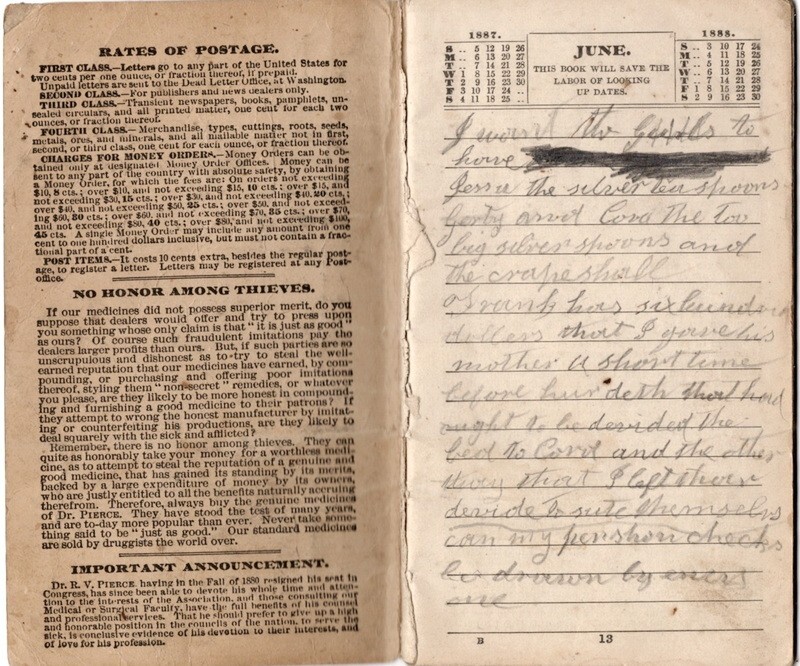 RATES OF POSTAGE.
FIRST CLASS.—Letters go to any part of the United States for
two cents per one ounce, or fraction thereof, if prepaid.
Unpaid letters are sent to the Dead Letter Office, at Washington.
SECOND CLASS.—For publishers and news dealers only.
THIRD CLASS.—Transient newspapers, books, pamphlets, un-
sealed circulars, and all printed matter, one cent for each two
ounces, or fraction thereof.
FOURTH CLASS.—Merchandise, types, cuttings, roots, seeds,
metals, ores, and minerals, and all mailable matter not in first,
second, or third class, one cent for each ounce, or fraction thereof.
CHARGES FOR MONEY ORDERS.—Money Orders can be ob-
tained only at designated Money Order Offices. Money can be
sent to any part of the country with absolute safety, by obtaining
a Money Order, for which the fees are: On orders not exceeding
$10, 8 cts.; over $10, and not exceeding $15, 10 cts.; over $15, and
not exceeding $30, 15 cts.; over $30, and not exceeding $40, 20 cts.;
over $40, and not exceeding $50, 25 cts.; over $50, and not exceed-
ing $60, 30 cts.; over $60, and not exceeding $70, 35 cts.; over $70,
and not exceeding $80, 40 cts.; over $80, and not exceeding $100,
45 cts. A single Money Order may include any amount from one
cent to one hundred dollars inclusive, but must not contain a frac-
tional part of a cent.
POST ITEMS.—It costs 10 cents extra, besides the regular post-
age, to register a letter. Letters may be registered at any Post-
office.
NO HONOR AMONG THIEVES.
If our medicines did not possess superior merit, do you
suppose that dealers would offer and try to press upon
you something whose only claim is that "it is just as good"
as ours? Of course such fraudulent imitations pay the
dealers larger profits than ours. But, if such parties are so
unscrupulous and dishonest as to try to steal the well-
earned reputation that our medicines have earned, by com-
pounding, or purchasing and offering poor imitations
thereof, styling them "non-secret" remedies, or whatever
you please, are they likely to be more honest in compound-
ing and furnishing a good medicine to their patrons? If
they attempt to wrong the honest manufacturer by imitat-
ing or counterfeiting his productions, are they likely to
deal squarely with the sick and afflicted?
Remember, there is no honor among thieves. They can
quite as honorably take your money for a worthless medi-
cine, as to attempt to steal the reputation of a genuine and
good medicine, that has gained its standing by its merits,
backed by a large expenditure of money by its owners,
who are justly entitled to all the benefits naturally accruing
therefrom. Therefore, always buy the genuine medicines
of Dr. PIERCE. They have stood the test of many years,
and are to-day more popular than ever. Never take some-
thing said to be "just as good." Our standard medicines
are sold by druggists the world over.
IMPORTANT ANNOUNCEMENT.
Dr. R. V. PIERCE, having in the Fall of 1880 resigned his seat in
Congress, has since been able to devote his whole time and atten-
tion to the interests of the Association, and those consulting our
Medical or Surgical Faculty, have the full benefits of his counsel
and professional services. That he should prefer to give up a high
and honorable position in the councils of the nation, to serve the
sick, is conclusive evidence of his devotion to their interests, and
of love for his profession.
1887.
S .. 5 12 19 26
M .. 6 13 20 27
T .. 7 14 21 28
W 1 8 15 22 29
T 2 9 16 23 30
F 3 10 17 24 ..
S 4 11 18 25 ..
JUNE.
THIS BOOK WILL SAVE THE
LABOR OF LOOKING
UP DATES.
1888.
S .. 3 10 17 24
M .. 4 11 18 25
T .. 5 12 19 26
W .. 6 13 20 27
T .. 7 14 21 28
F 1 8 15 22 29
S 2 9 16 23 30
I want the to
have
Jessie the silver tea spoons
Gerty and Cora the two
big silver spoons and
the crape shall
Frank has six hundred
dollers that I gave his
mother a short time
before hur deth that had
ought to be devided the
bed to Cora and the other
thay that I left their
devide to sute themselvs
can my penshon checks
be drawn by
one
B
13